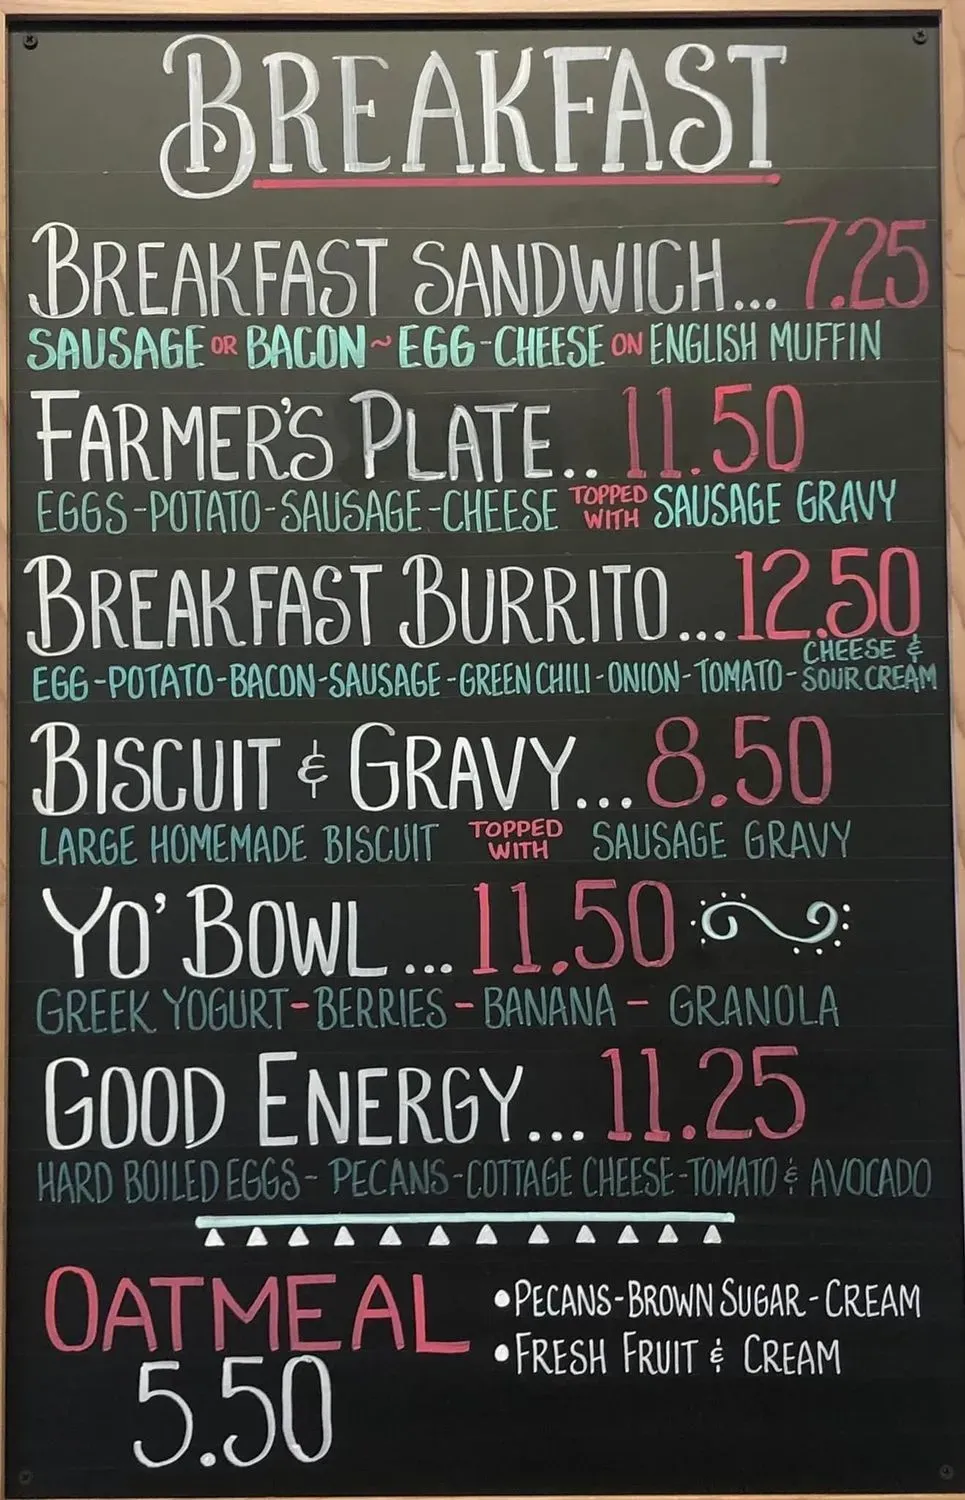 BREAKFAST
BREAKFAST SANDWICH... 7.25
SAUSAGE OR BACON ~ EGG - CHEESE ON ENGLISH MUFFIN
FARMER'S PLATE.. 11.50
EGGS - POTATO - SAUSAGE - CHEESE TOPPED WITH SAUSAGE GRAVY
BREAKFAST BURRITO ... 12.50
EGG - POTATO - BACON - SAUSAGE - GREEN CHILI - ONION - TOMATO - CHEESE & SOUR CREAM
BISCUIT & GRAVY... 8.50
LARGE HOMEMADE BISCUIT TOPPED WITH SAUSAGE GRAVY
YO' BOWL ... 11.50
GREEK YOGURT - BERRIES - BANANA - GRANOLA
GOOD ENERGY... 11.25
HARD BOILED EGGS - PECANS - COTTAGE CHEESE - TOMATO & AVOCADO
OATMEAL
5.50
• PECANS - BROWN SUGAR - CREAM
• FRESH FRUIT & CREAM